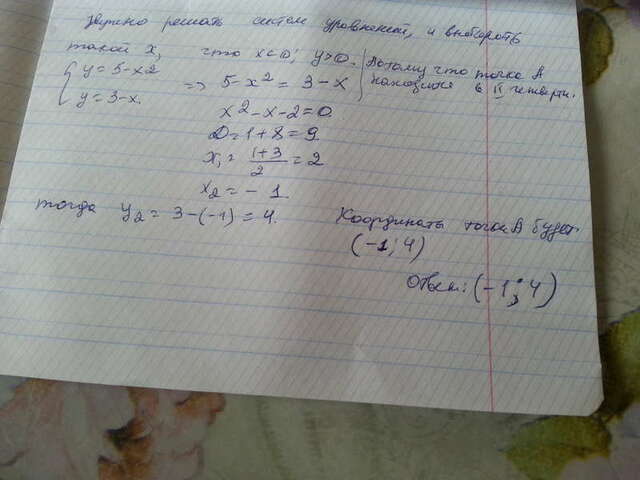 Нужно решать систем уравнений, и выбирать
такой x, что x<0; y>0. Потому что точка A
находится в II четверти.
{ y = 5-x2
y = 3-x.
=> 5-x² = 3-x
x²-x-2=0
D=1+8=9
x₁ = (1+3)/2 = 2
x₂ = -1.
тогда y₂ = 3-(-1) = 4.
Координаты точки A будет
(-1; 4)
Ответ: (-1; 4)